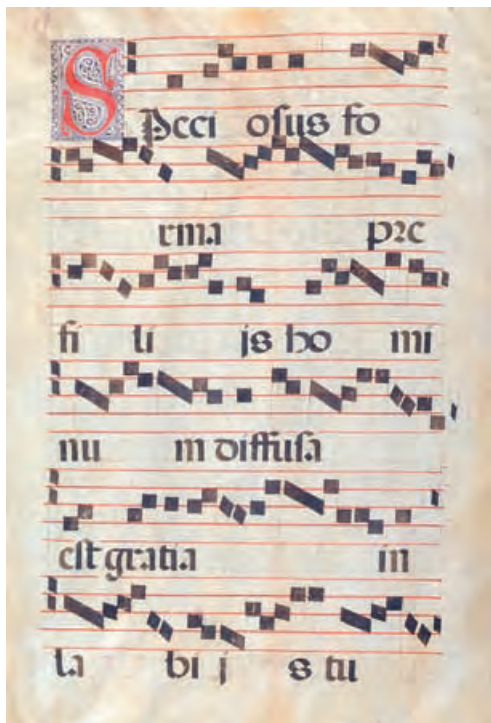 Speci osus fo
rma pre
fi li js ho mi
nu m diffusa
est gratia in
la bi j s tu